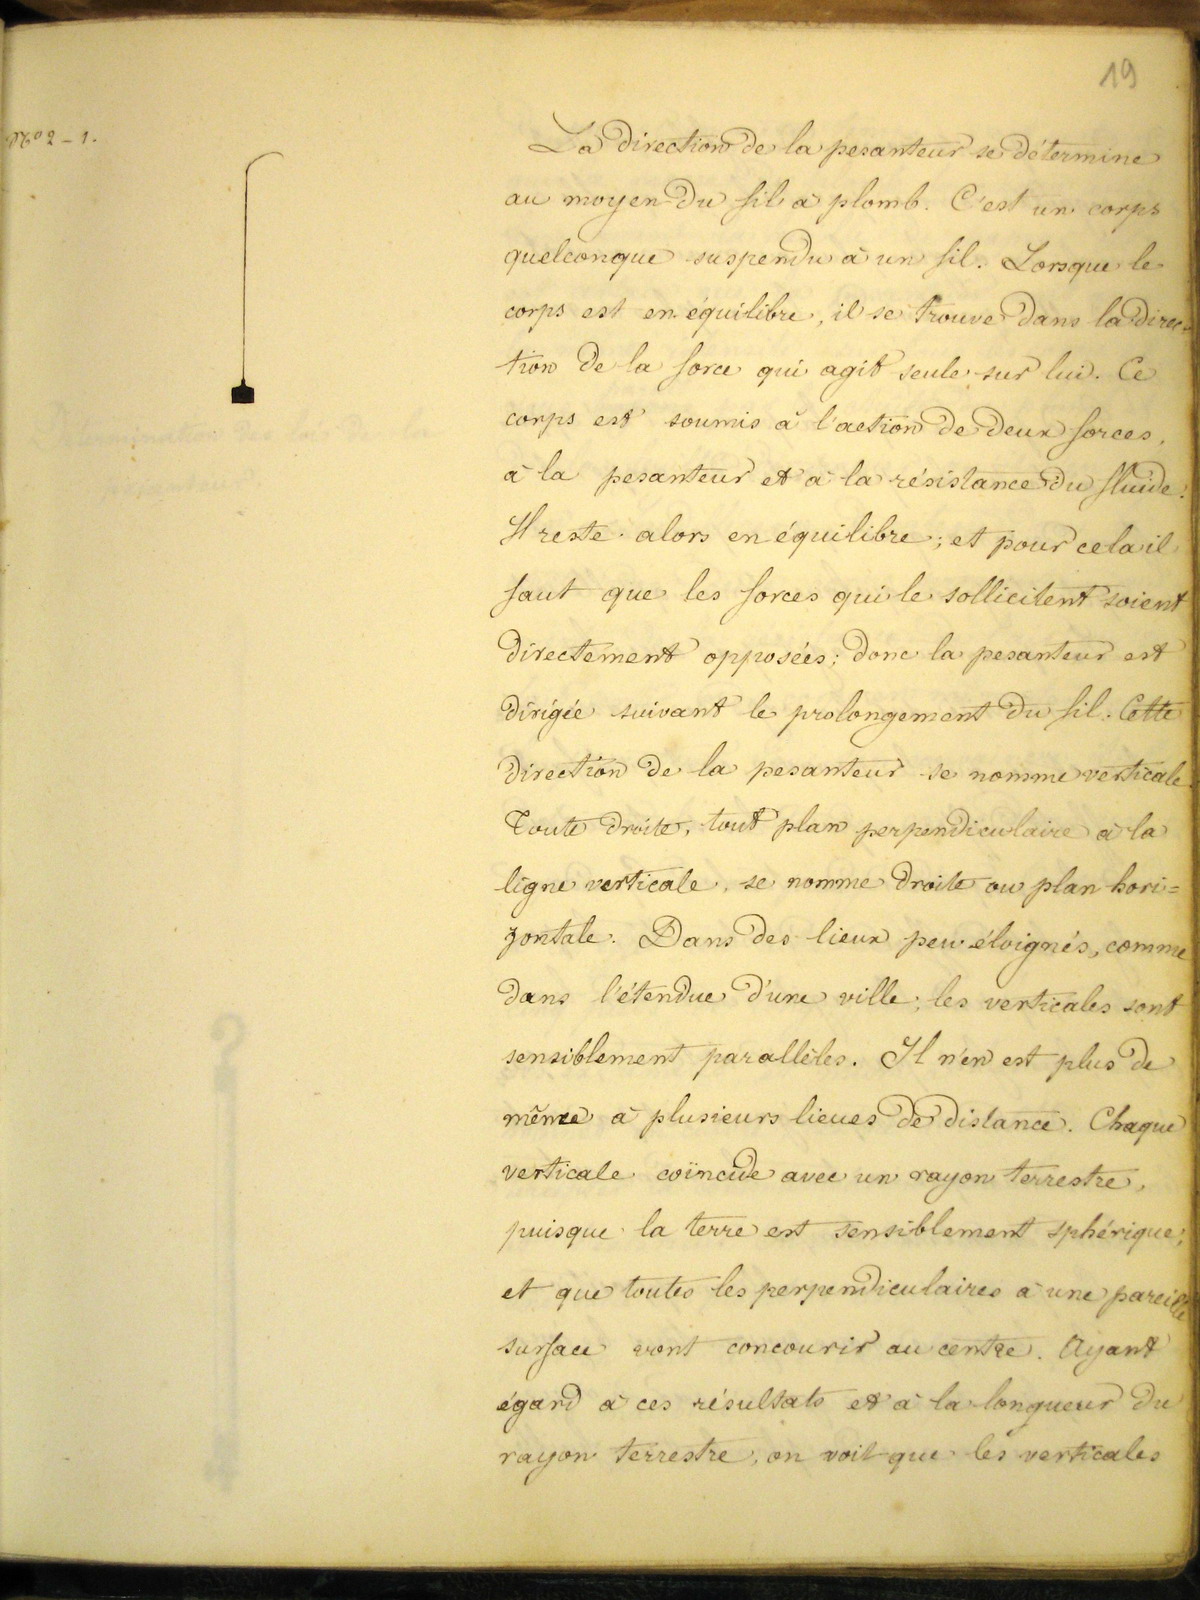 19
No 2 - 1.
La direction de la pesanteur se détermine
au moyen du fil à plomb. C'est un corps
quelconque suspendu à un fil. Lorsque le
corps est en équilibre, il se trouve dans la direc-
tion de la force qui agit seule sur lui. Ce
corps est soumis à l'action de deux forces,
à la pesanteur et à la résistance du fluide.
Il reste alors en équilibre ; et pour cela il
faut que les forces qui le sollicitent soient
directement opposées ; donc la pesanteur est
dirigée suivant le prolongement du fil. Cette
direction de la pesanteur se nomme verticale
Toute droite, tout plan perpendiculaire à la
ligne verticale, se nomme droite ou plan hori=
zontale. Dans des lieux peu éloignés, comme
dans l'étendue d'une ville, les verticales sont
sensiblement parallèles. Il n'en est plus de
même à plusieurs lieues de distance. Chaque
verticale coïncide avec un rayon terrestre,
puisque la terre est sensiblement sphérique,
et que toutes les perpendiculaires à une pareille
surface vont concourir au centre. Ayant
égard à ces résultats et à la longueur du
rayon terrestre, on voit que les verticales